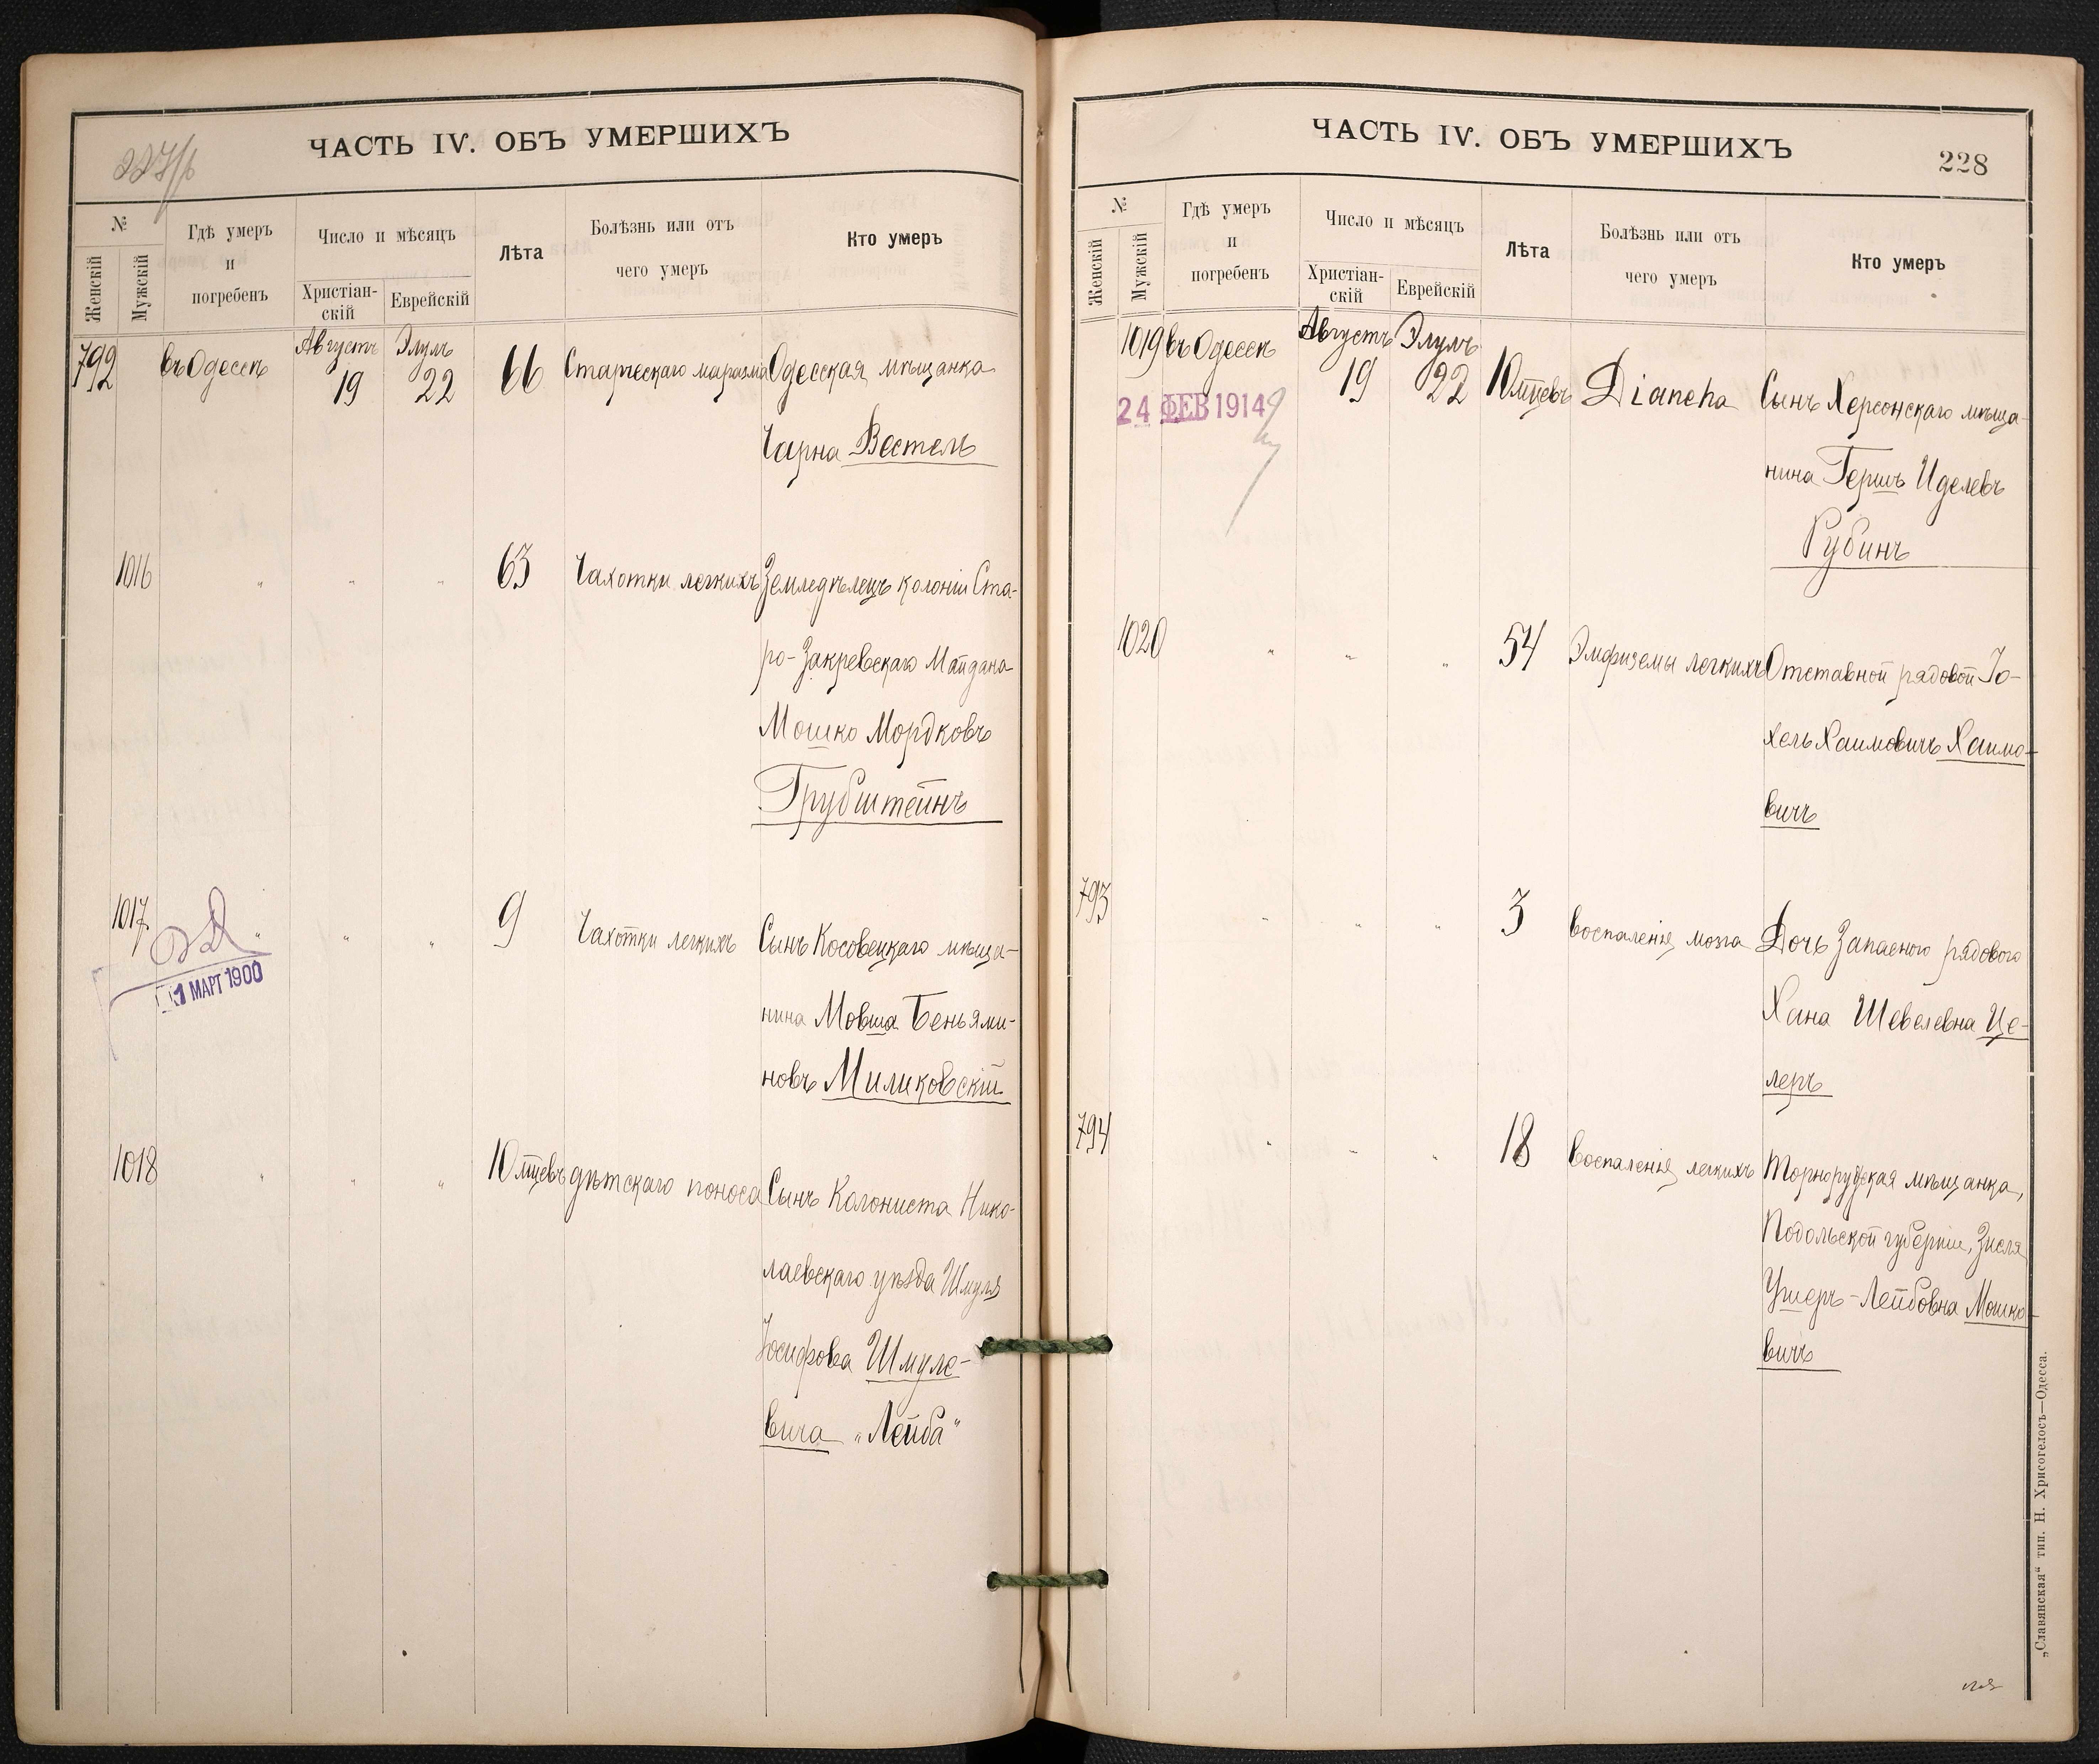 ЧАСТЬ IV. ОБЪ УМЕРШИХЪ
№
Женскій
Мужскій
Гдѣ умеръ
и
погребенъ
Число и мѣсяцъ
Христіан-
скій
Еврейскій
Лѣта
Болѣзнь или отъ
чего умеръ
Кто умеръ
792 въ Одессѣ Августъ Элулъ 66 Старческаго маразма Одесская мѣщанка
19 22
Чарна Вестель
1016 " " " 63 Чахотки легкихъ Земледѣлецъ колоніи Ста-
ро-Закревскаго Майдана
Мошко Мордковъ
Грубштейнъ
1017 " " " 9 Чахотки легкихъ Сынъ Косовецкаго мѣща-
1 МАРТ 1900
нина Мовша Беньями-
новъ Миликовскій
1018 " " " 10 мцевъ дѣтскаго поноса Сынъ Колониста Нико-
лаевскаго уѣзда Шмуля
Іосифова Шмуле-
вича „Лейба"
ЧАСТЬ IV. ОБЪ УМЕРШИХЪ
228
№
Женскій
Мужскій
Гдѣ умеръ
и
погребенъ
Число и мѣсяцъ
Христіан-
скій
Еврейскій
Лѣта
Болѣзнь или отъ
чего умеръ
Кто умеръ
1019 въ Одессѣ Августъ Элулъ
19 22 10 мцевъ Сынъ Херсонскаго мѣща-
24 ФЕВ 1914
нина Гершъ Иделевъ
Рубинъ
1020 " " " 54 Эмфиземы легкихъ Отставной рядовой Іо-
хель Хаимовичъ Хаимо-
вичъ
793 " " " 3 Воспаленія мозга Дочь Запасного рядового
Хана Шевелевна Це-
леръ
794 " " " 18 Воспаленія легкихъ Торнорудская мѣщанка,
Подольской губерніи, Зисля
Ушеръ-Лейбовна Мошко-
вичъ
„Славянская" тип. Н. Хрисогелосъ—Одесса.